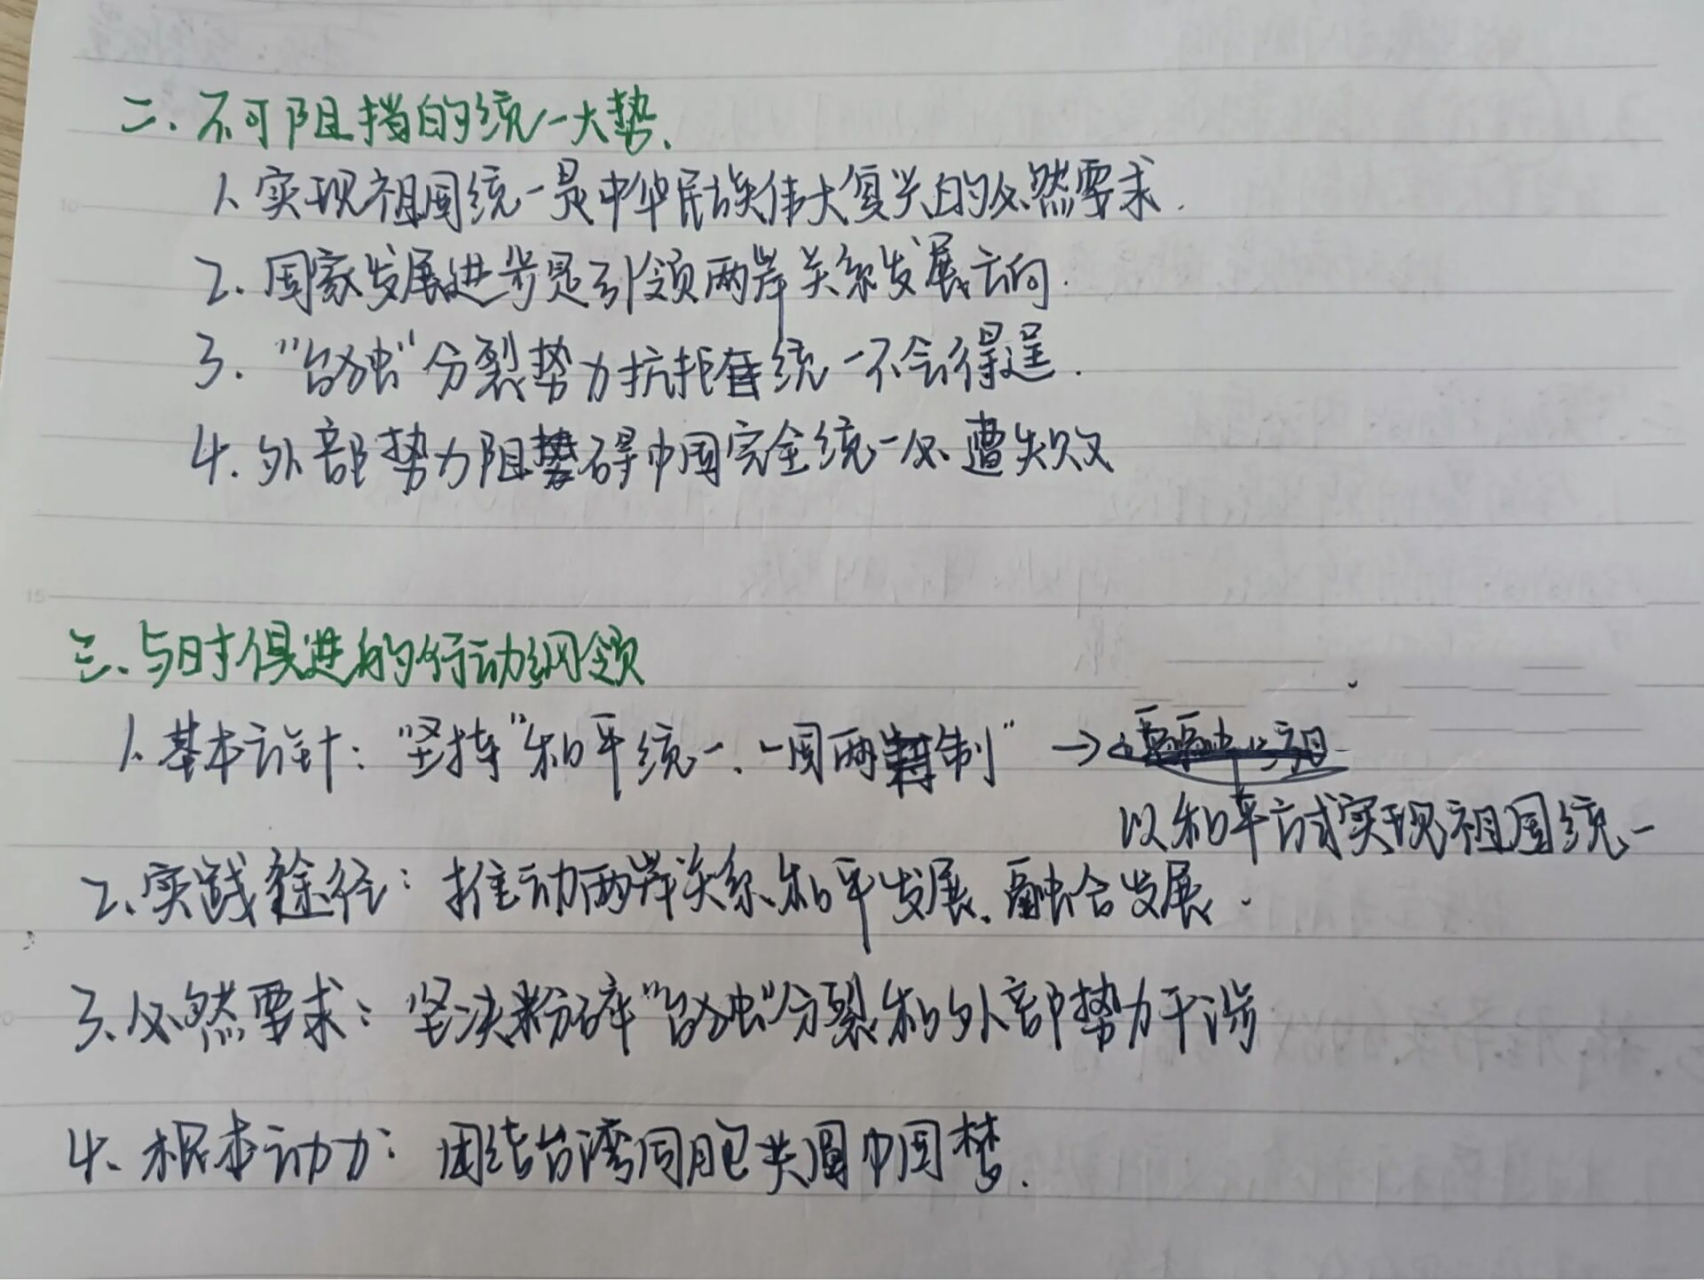 二、不可阻挡的统一大势.
1. 实现祖国统一是中华民族伟大复兴的必然要求.
2. 国家发展进步是引领两岸关系发展方向.
3. "台独"分裂势力抗拒统一不会得逞.
4. 外部势力阻碍中国完全统一必遭失败
三、与时俱进的行动纲领
1. 基本方针：坚持"和平统一、一国两制" →
以和平方式实现祖国统一
2. 实践途径：推动两岸关系和平发展、融合发展.
3. 必然要求：坚决粉碎"台独"分裂和外部势力干涉
4. 根本动力：团结台湾同胞共圆中国梦.